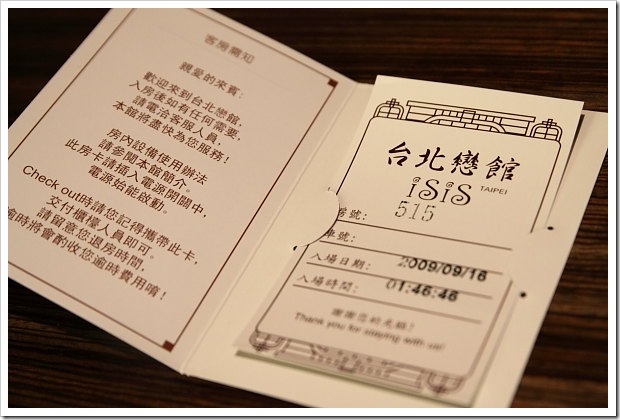 客房需知
親愛的來賓:
歡迎來到台北戀館,
入房後如有任何需要,
請電洽客服人員,
本館將盡快為您服務!
房內設備使用辦法
請參閱本館簡介。
此房卡請插入電源開關中,
電源始能啟動。
Check out時請您記得攜帶此卡,
交付櫃檯人員即可。
請留意您退房時間,
逾時將會酌收您逾時費用唷!
台北戀館
iSiS TAIPEI
房號: 515
車號:
入場日期: 2009/09/16
入場時間: 01:46:46
謝謝您的光臨!
Thank you for staying with us!